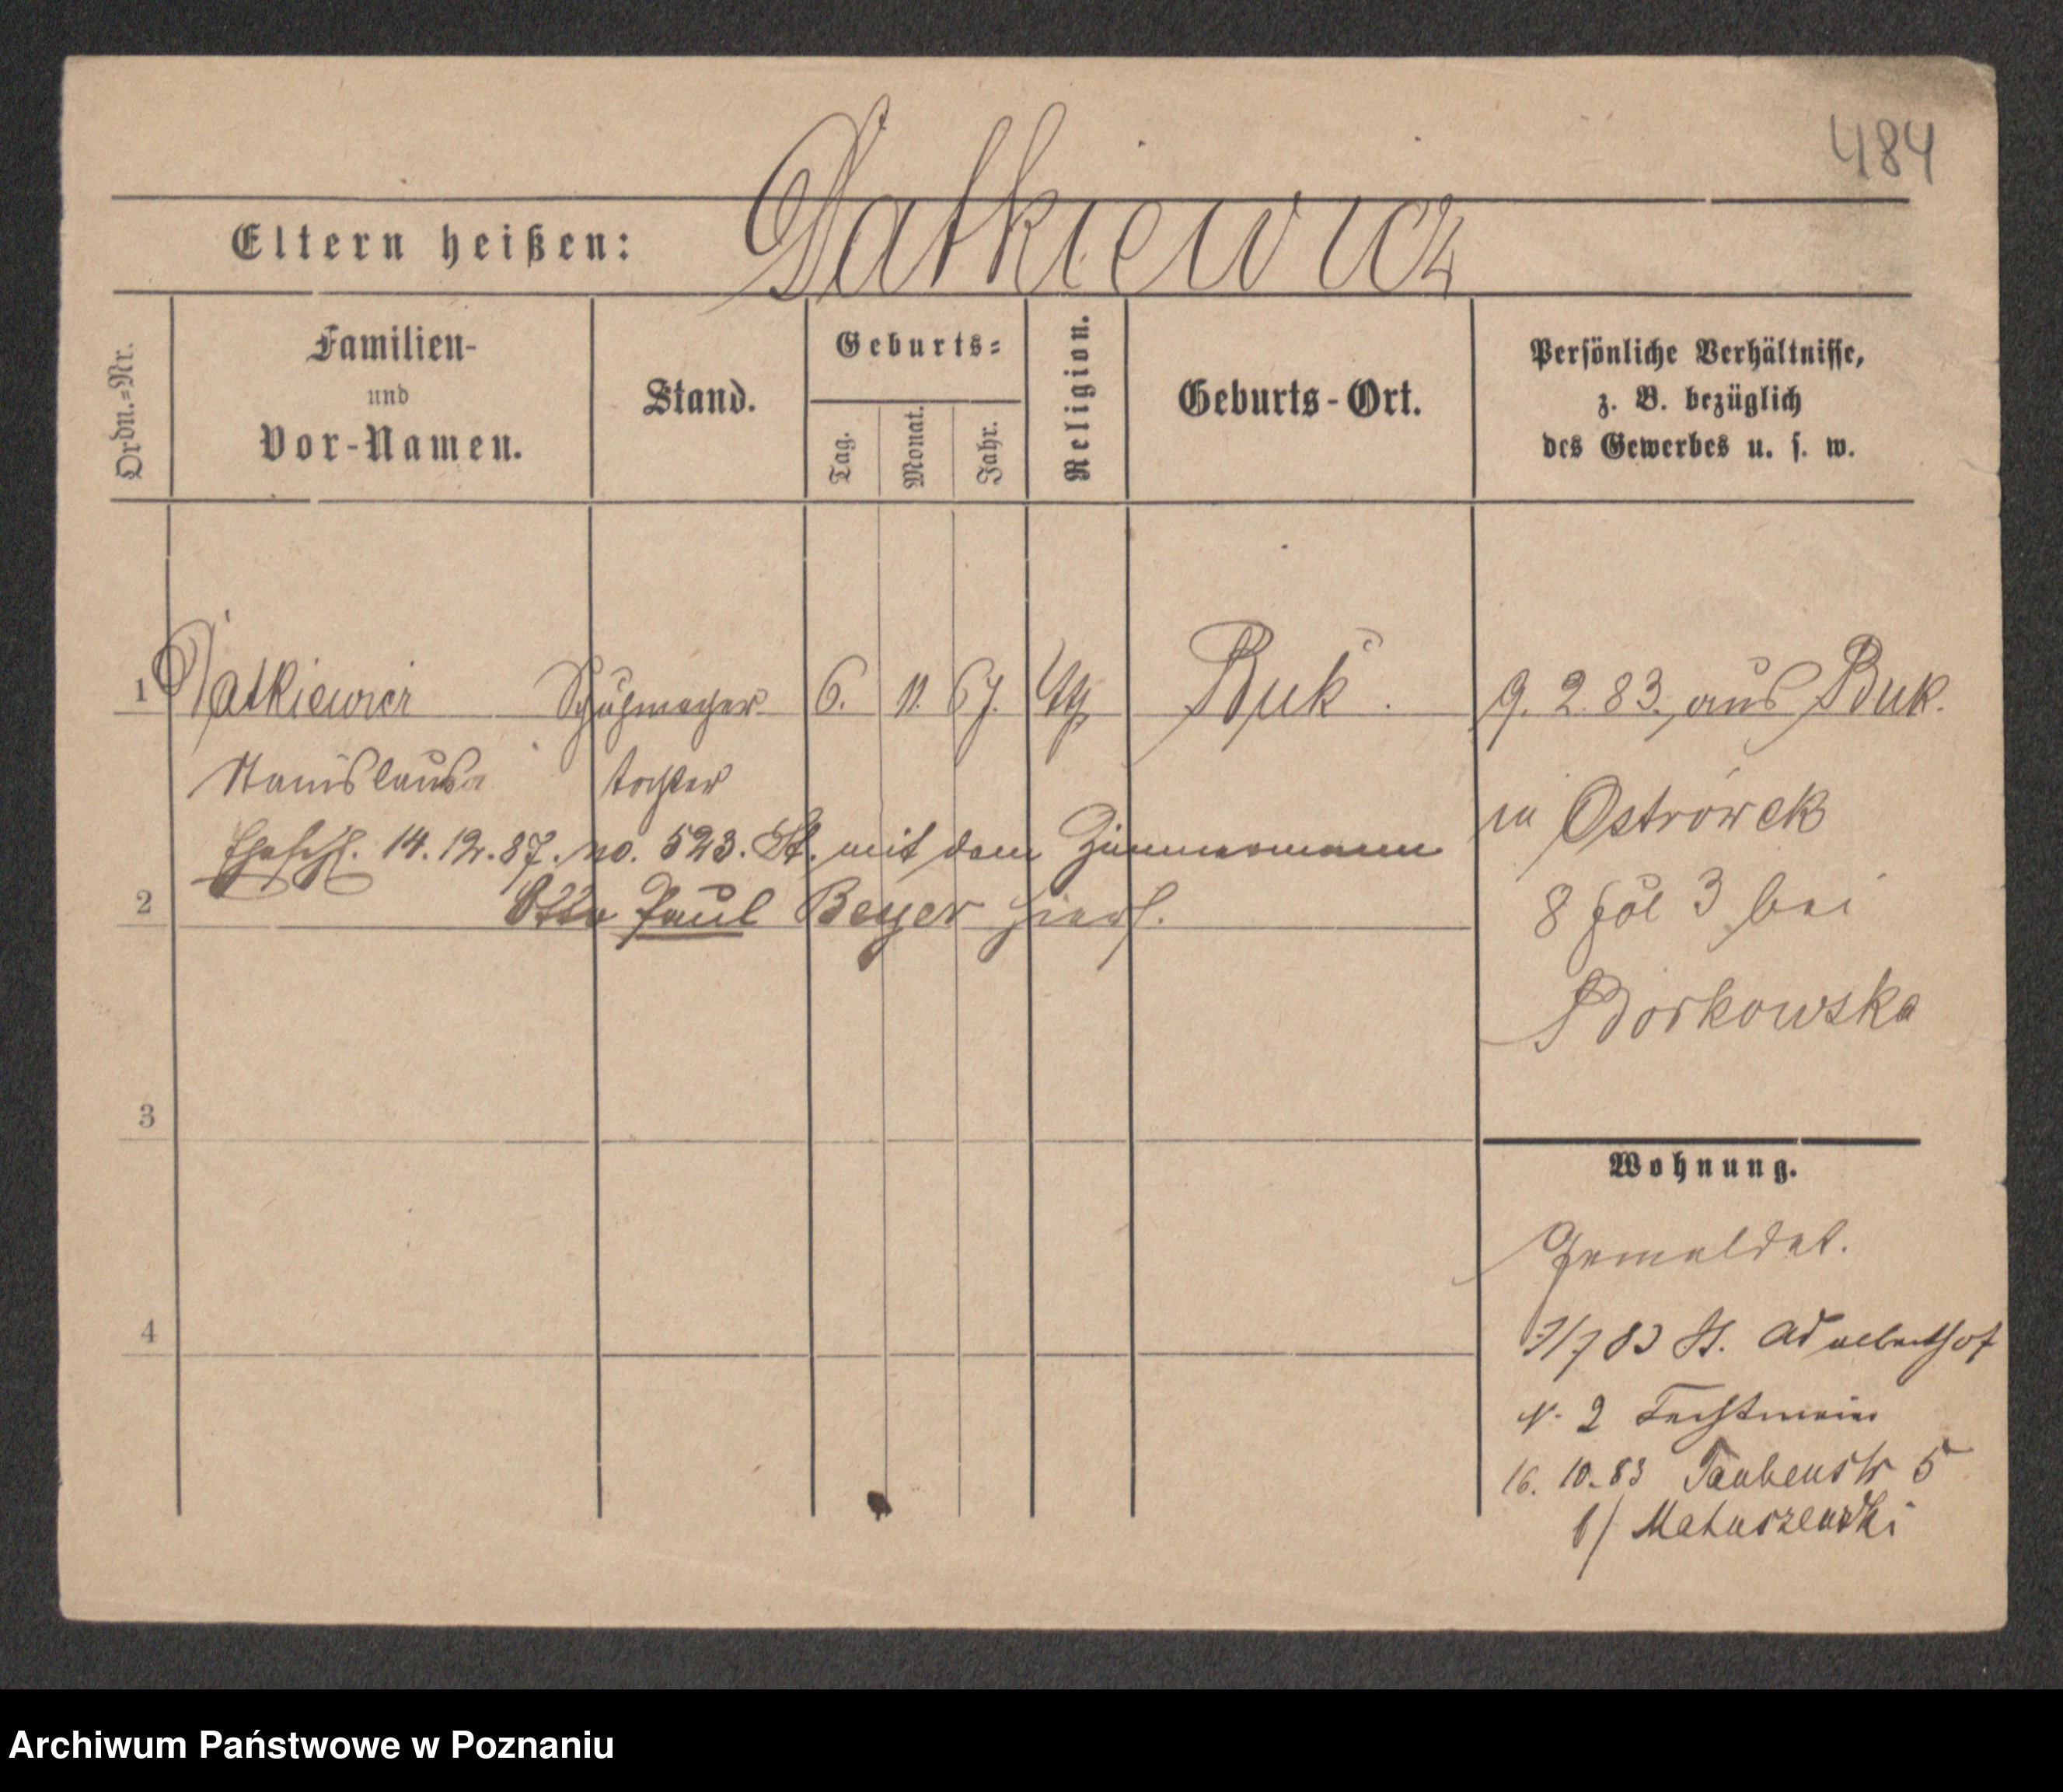 484
Eltern heißen: Datkiewicz
Ordn.=Nr.
Familien-
und
Vor-Namen.
Stand.
Geburts=
Tag.
Monat.
Jahr.
Religion.
Geburts-Ort.
Persönliche Verhältnisse,
z. B. bezüglich
des Gewerbes u. s. w.
1 Datkiewicz Schuhmacher 6. 11. 67. Buk. 9. 2. 83. aus Buk.
Stanislausa tochter
in Ostrówek
14. 12. 87. no. 523. St. mit dem Zimmermann
8 bei
2 Otto Paul Beyer hiers.
Borkowska
3
Wohnung.
Gemeldet.
4
83 St. Adalberthof
N. 2
16. 10. 83 Taubenstr 5
b/ Matuszewski
Archiwum Państwowe w Poznaniu